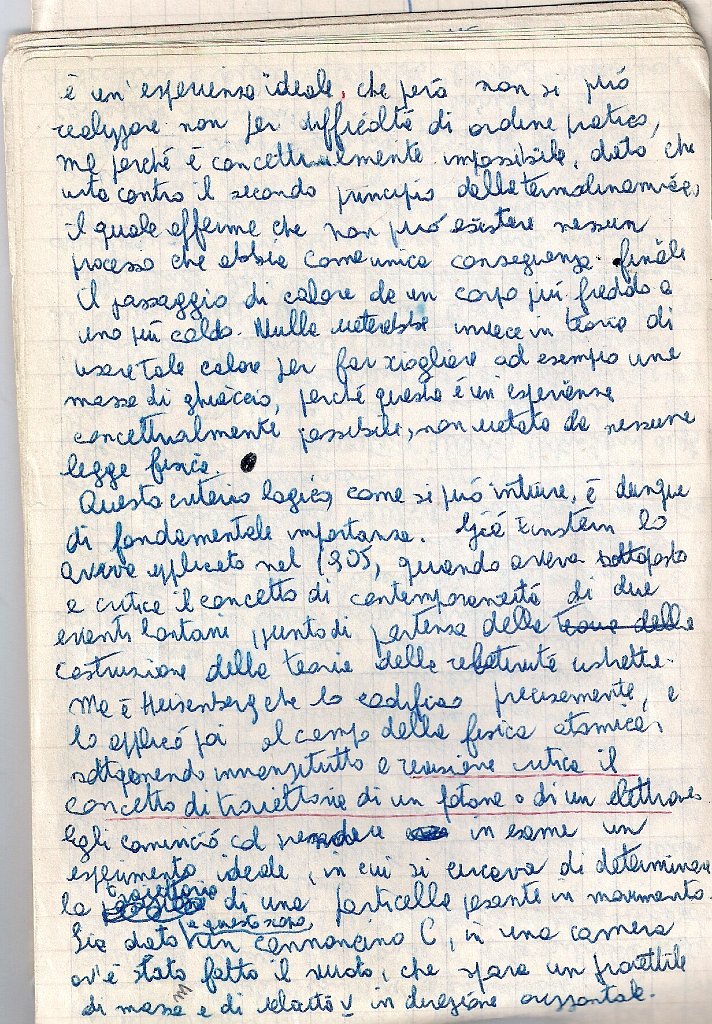 è un'esperienza ideale, che però non si può
realizzare non per difficoltà di ordine pratico,
ma perché è concettualmente impossibile, dato che
urta contro il secondo principio della termodinamica,
il quale afferma che non può esistere nessun
processo che abbia come unica conseguenza finale
il passaggio di calore da un corpo più freddo a
uno più caldo. Nulla vieterebbe invece in teoria di
usare tale calore per far sciogliere ad esempio una
massa di ghiaccio, perché questa è un'esperienza
concettualmente possibile, non vietata da nessuna
legge fisica.
Questo criterio logico, come si può intuire, è dunque
di fondamentale importanza. Già Einstein lo
aveva applicato nel 1905, quando aveva sottoposto
a critica il concetto di contemporaneità di due
eventi lontani, punto di partenza della teoria della
costruzione della teoria della relatività ristretta.
Ma è Heisenberg che lo codificò precisamente, e
lo applicò poi al campo della fisica atomica,
sottoponendo innanzitutto a revisione critica il
concetto di traiettoria di un fotone o di un elettrone.
Egli cominciò col prendere in esame un
esperimento ideale, in cui si cercava di determinare
la traiettoria di una particella pesante in movimento.
Sia dato a questo scopo un cannoncino C, in una camera
ov'è stato fatto il vuoto, che spara un proiettile
di massa m e di velocità v in direzione orizzontale.